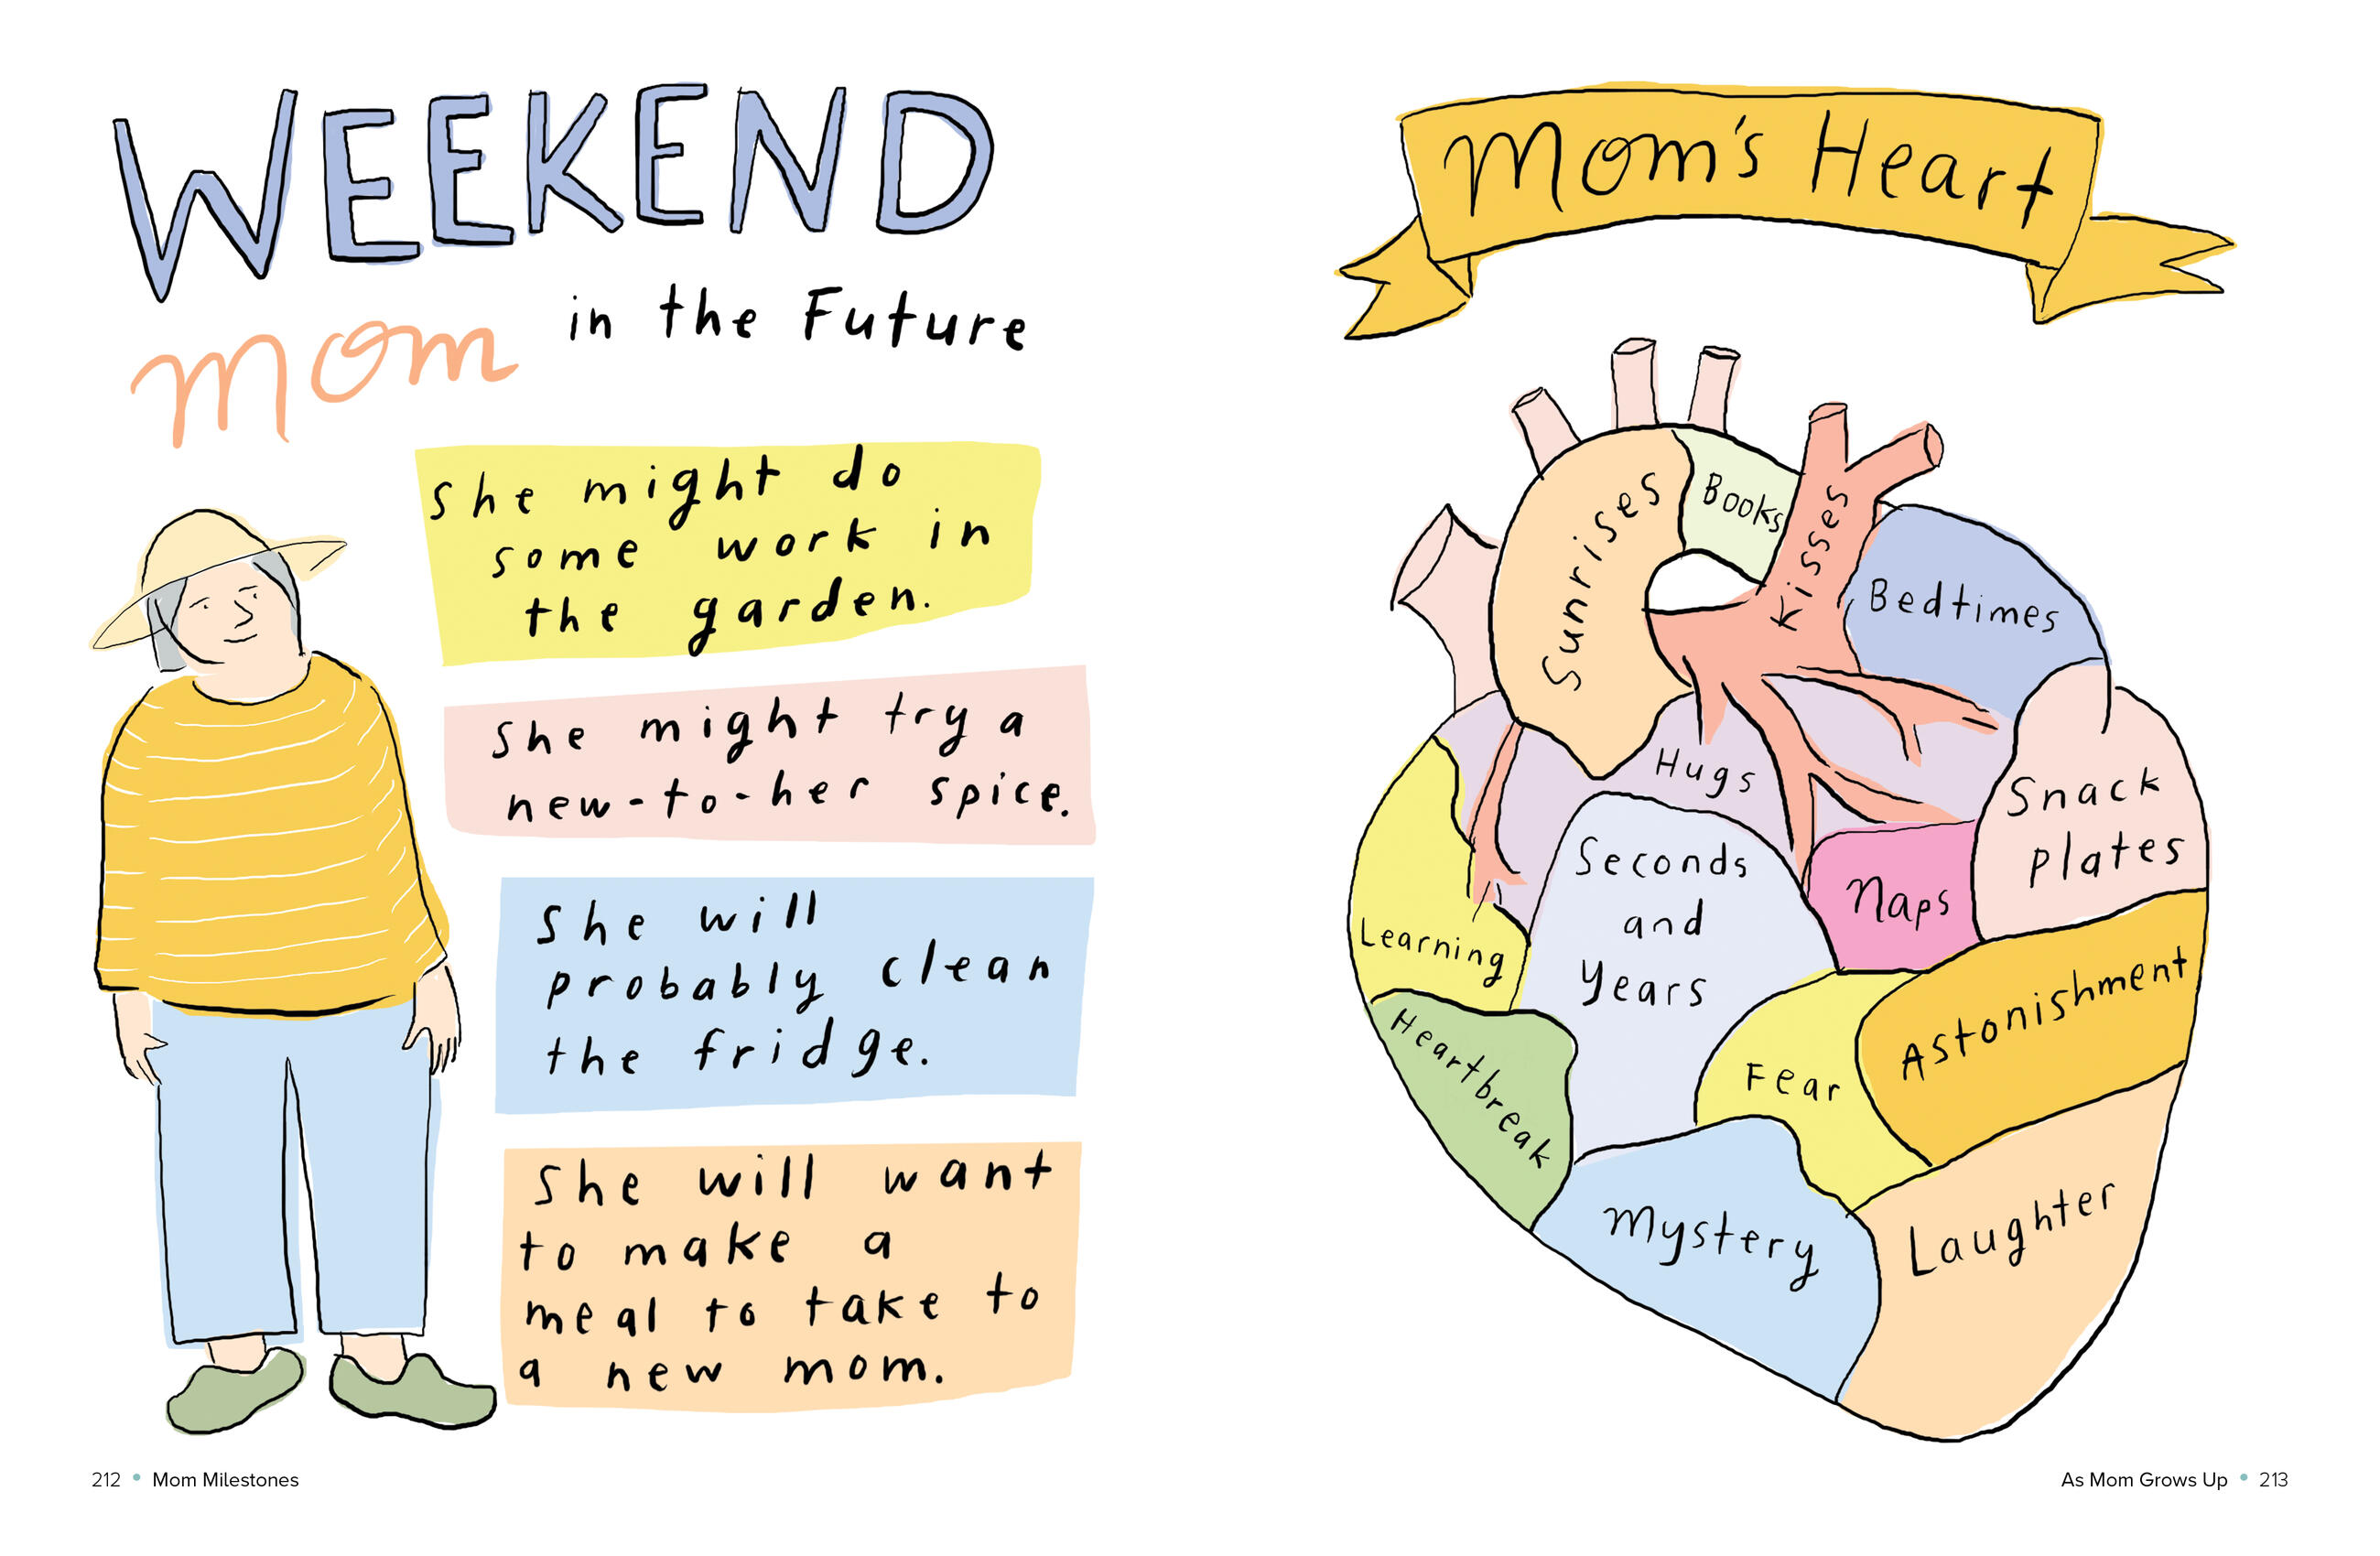 WEEKEND
mom in the Future
She might do
some work in
the garden.
She might try a
new-to-her spice.
She will
probably clean
the fridge.
She will want
to make a
meal to take to
a new mom.
212 • Mom Milestones
Mom's Heart
Sunrises
Books
Kisses
Bedtimes
Hugs
Snack
plates
Seconds
and
years
Naps
Learning
Heartbreak
Fear
Astonishment
Mystery
Laughter
As Mom Grows Up • 213